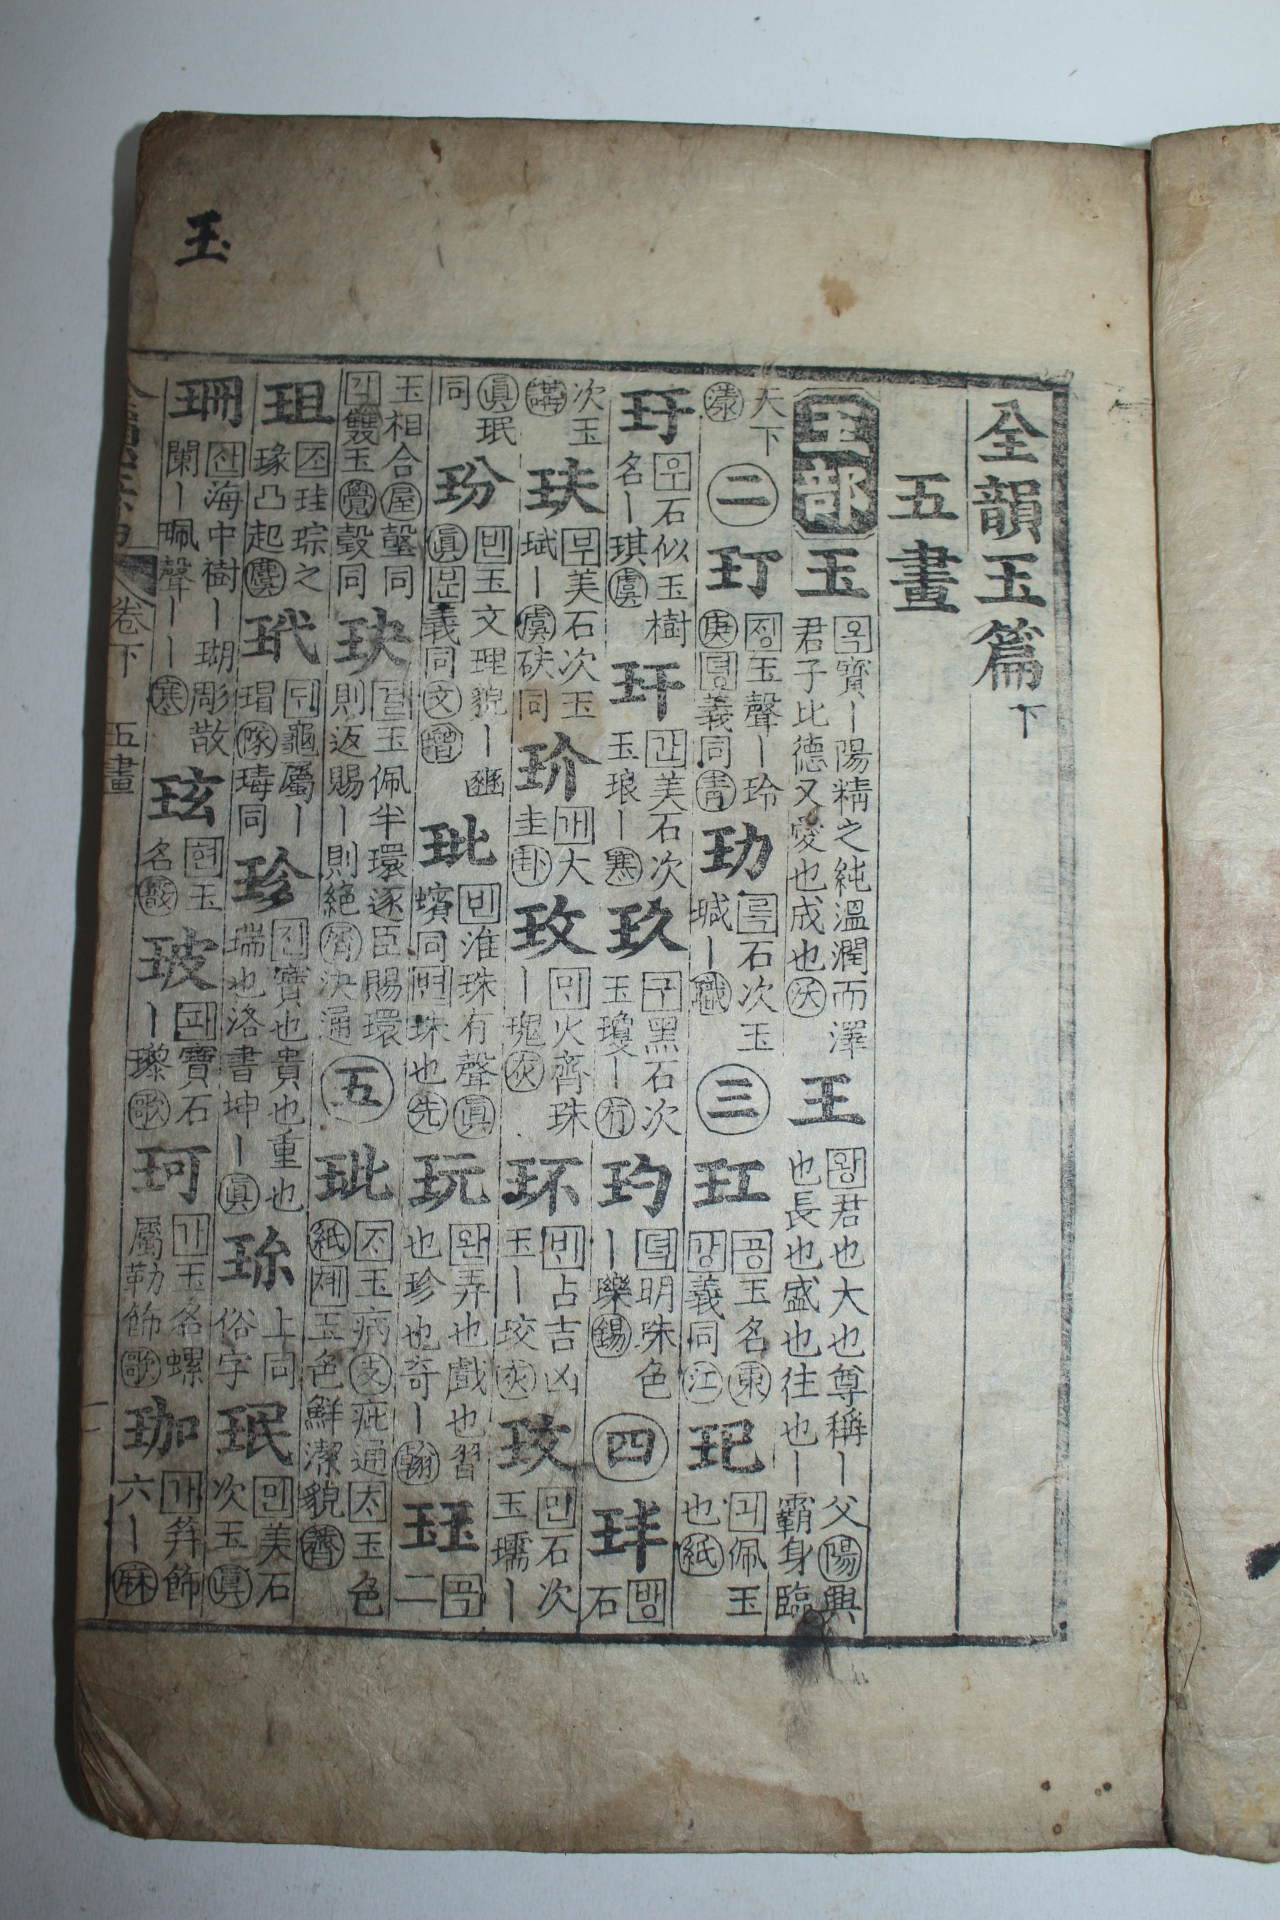 玉
全韻玉篇 下
五畫
玉部 玉 옥 寶丨陽精之純溫潤而澤君子比德又愛也成也沃 王 왕 君也大也尊稱丨父陽興也長也盛也往也丨霸身臨
天下漾 二 玎 정 玉聲丨玲庚 뎡 義同靑 玏 륵 石次玉瑊丨職 三 玒 공 玉名東 강 義同江 玘 긔 佩玉也紙
玗 우 石似玉樹名丨琪虞 玕 간 美石次玉琅丨寒 玖 구 黑石次玉瓊丨有 玓 뎍 明珠色丨皪錫 四 玤 방 石
次玉講 玞 부 美石次玉珷丨虞砆同 玠 개 大圭卦 玫 㕥 火齊珠丨瑰灰 环 玉丨珓灰 占吉凶 玟 민 石次玉瓀丨
眞珉同 玢 빈 玉文理貌丨豳眞 義同文 玭 빈 淮珠有聲眞蠙同 변 珠也先 玩 완 弄也戲也習也珍也奇丨翰 玨 곡 二
玉相合屋瑴同 각 雙玉覺瑴同 玦 결 玉佩半環逐臣賜環則返賜丨則絶屑決通 五 玼 玉病支疵通 玉色鮮潔貌薺 紙 玉色
珇 조 珪琮之瑑凸起麌 玳 龜屬丨瑁隊瑇同 珍 진 寶也貴也重也瑞也洛書坤丨眞 珎 上同俗字 珉 민 美石次玉眞
珊 산 海中樹丨瑚彫散闌丨珮聲丨丨寒 玹 현 玉名霰 玻 파 寶石丨瓈歌 珂 가 玉名螺屬勒飾歌 珈 가 笄飾六丨麻
卷下 五畫 一